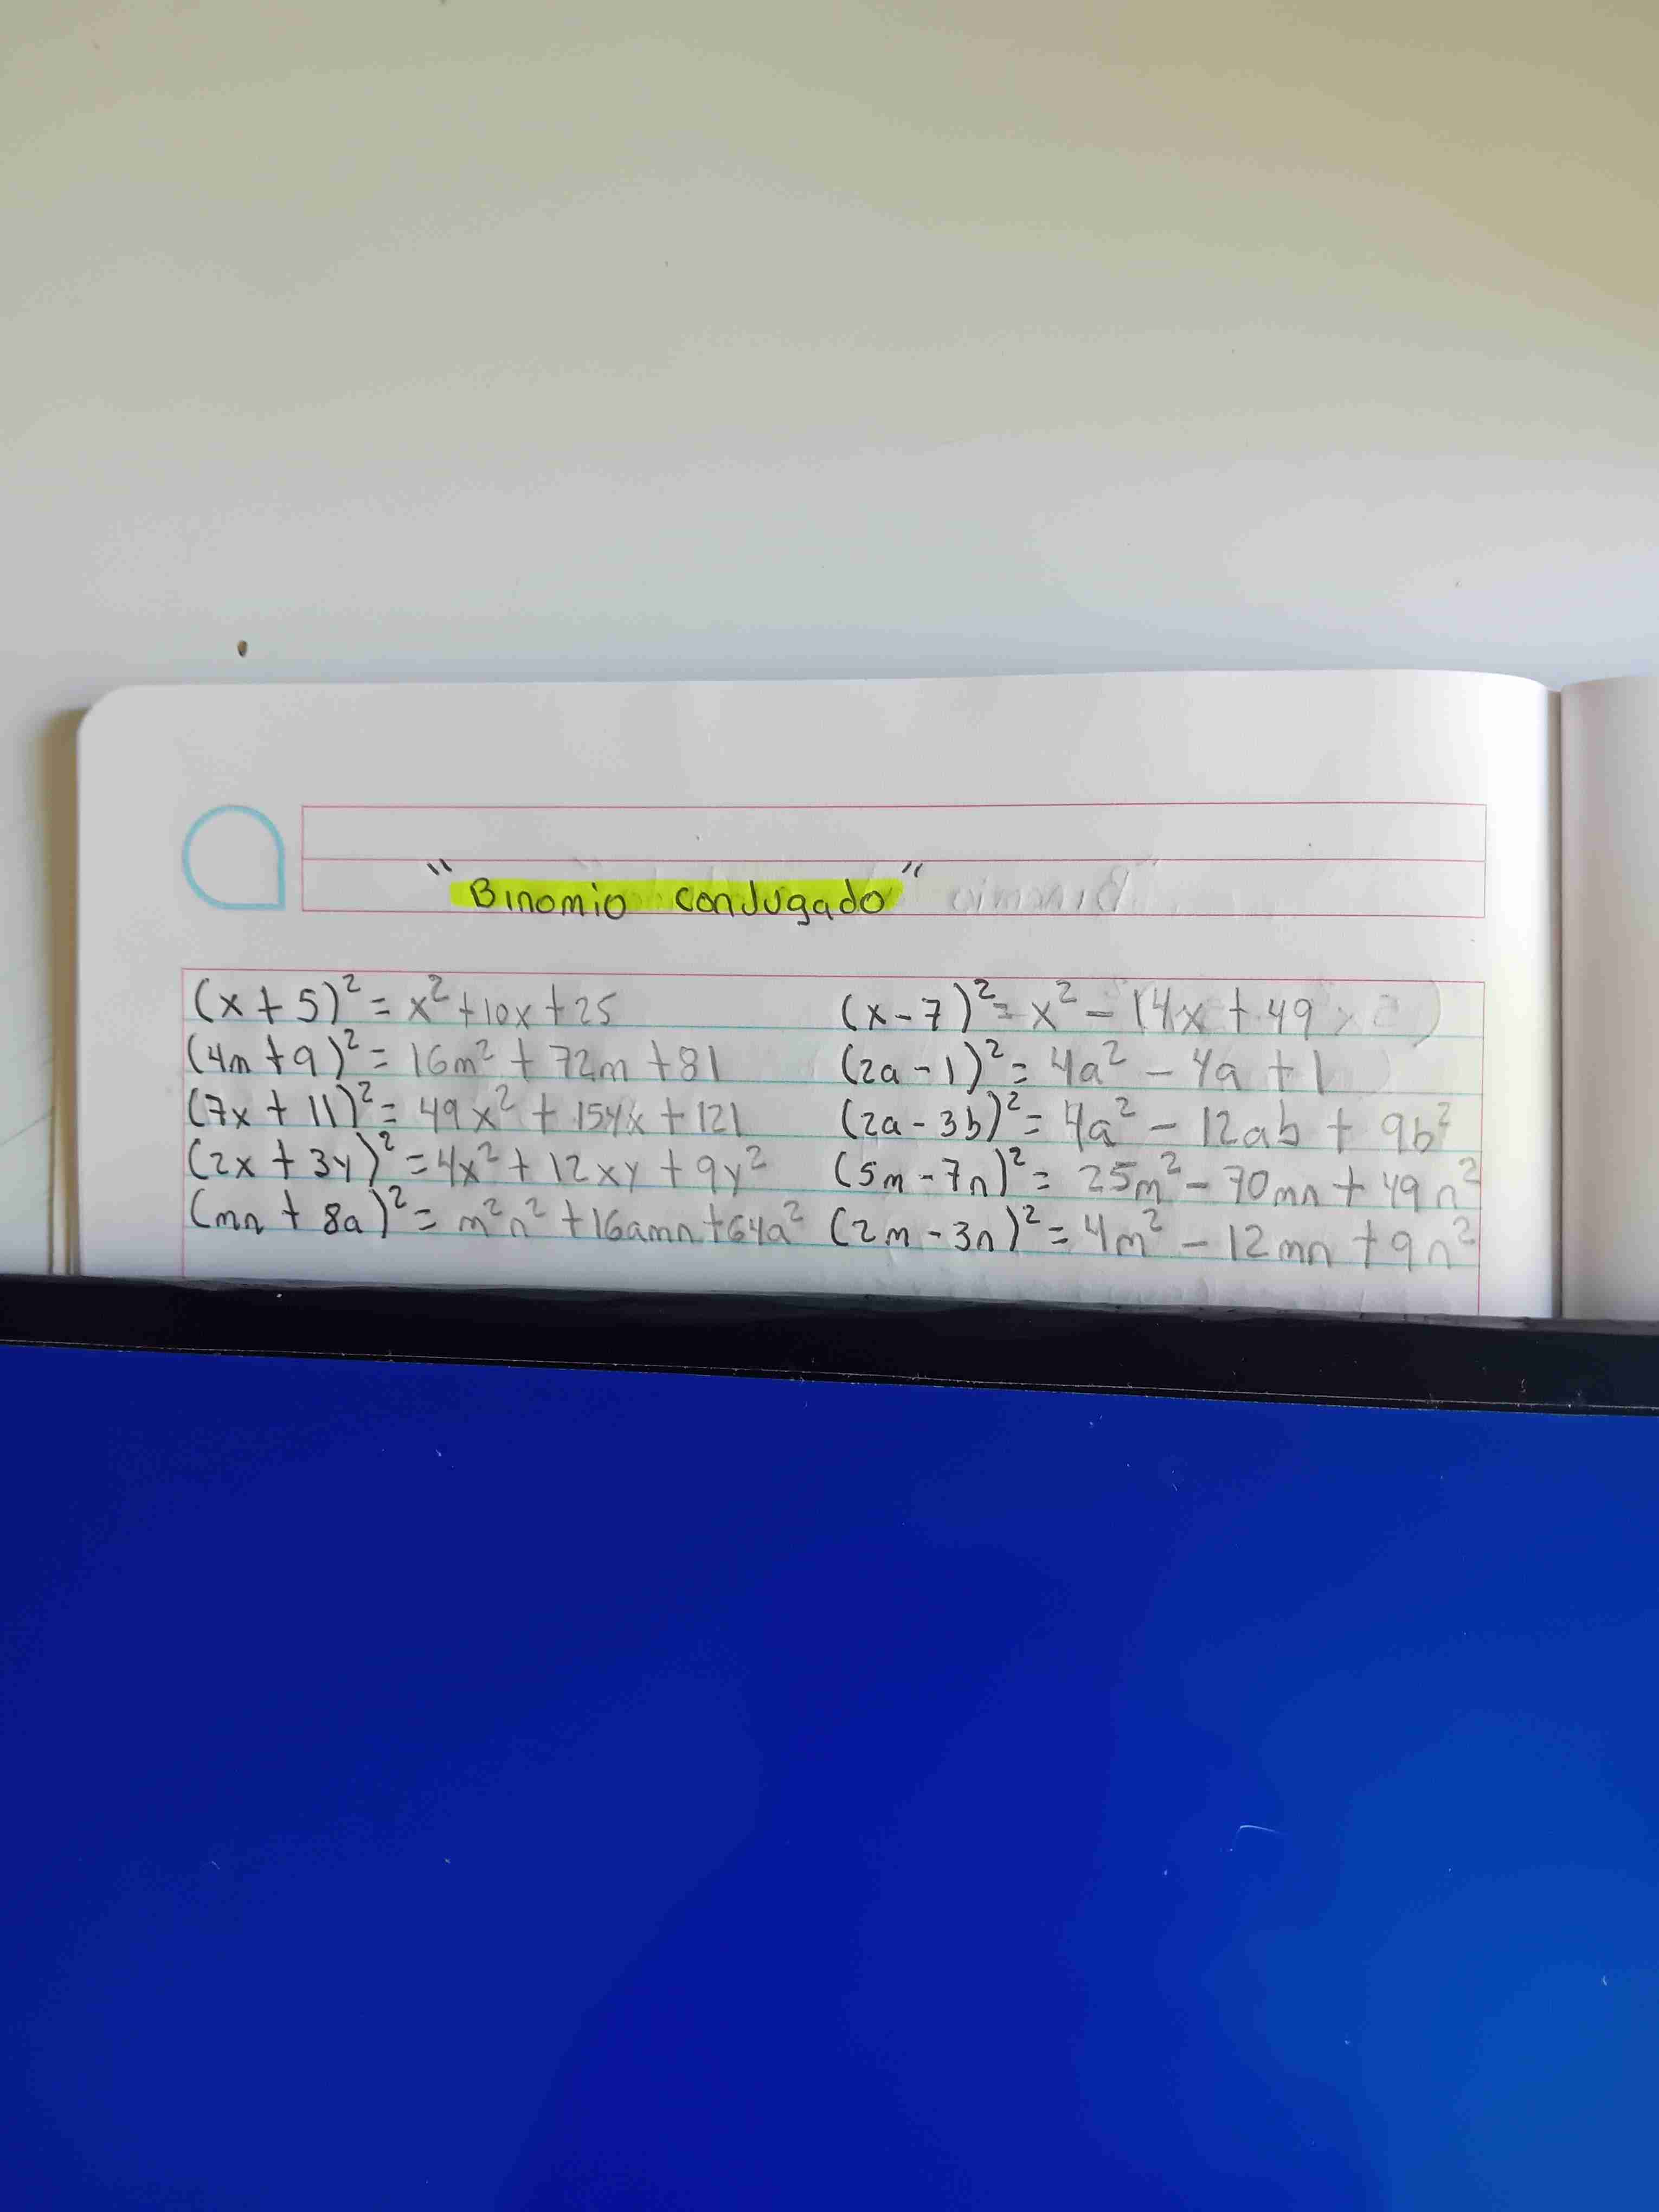 "Binomio conjugado"
(x + 5)² = x² + 10x + 25
(4m + 9)² = 16m² + 72m + 81
(7x + 11)² = 49x² + 154x + 121
(2x + 3y)² = 4x² + 12xy + 9y²
(mn + 8a)² = m²n² + 16amn + 64a²
(x - 7)² = x² - 14x + 49
(2a - 1)² = 4a² - 4a + 1
(2a - 3b)² = 4a² - 12ab + 9b²
(5m - 7n)² = 25m² - 70mn + 49n²
(2m - 3n)² = 4m² - 12mn + 9n²